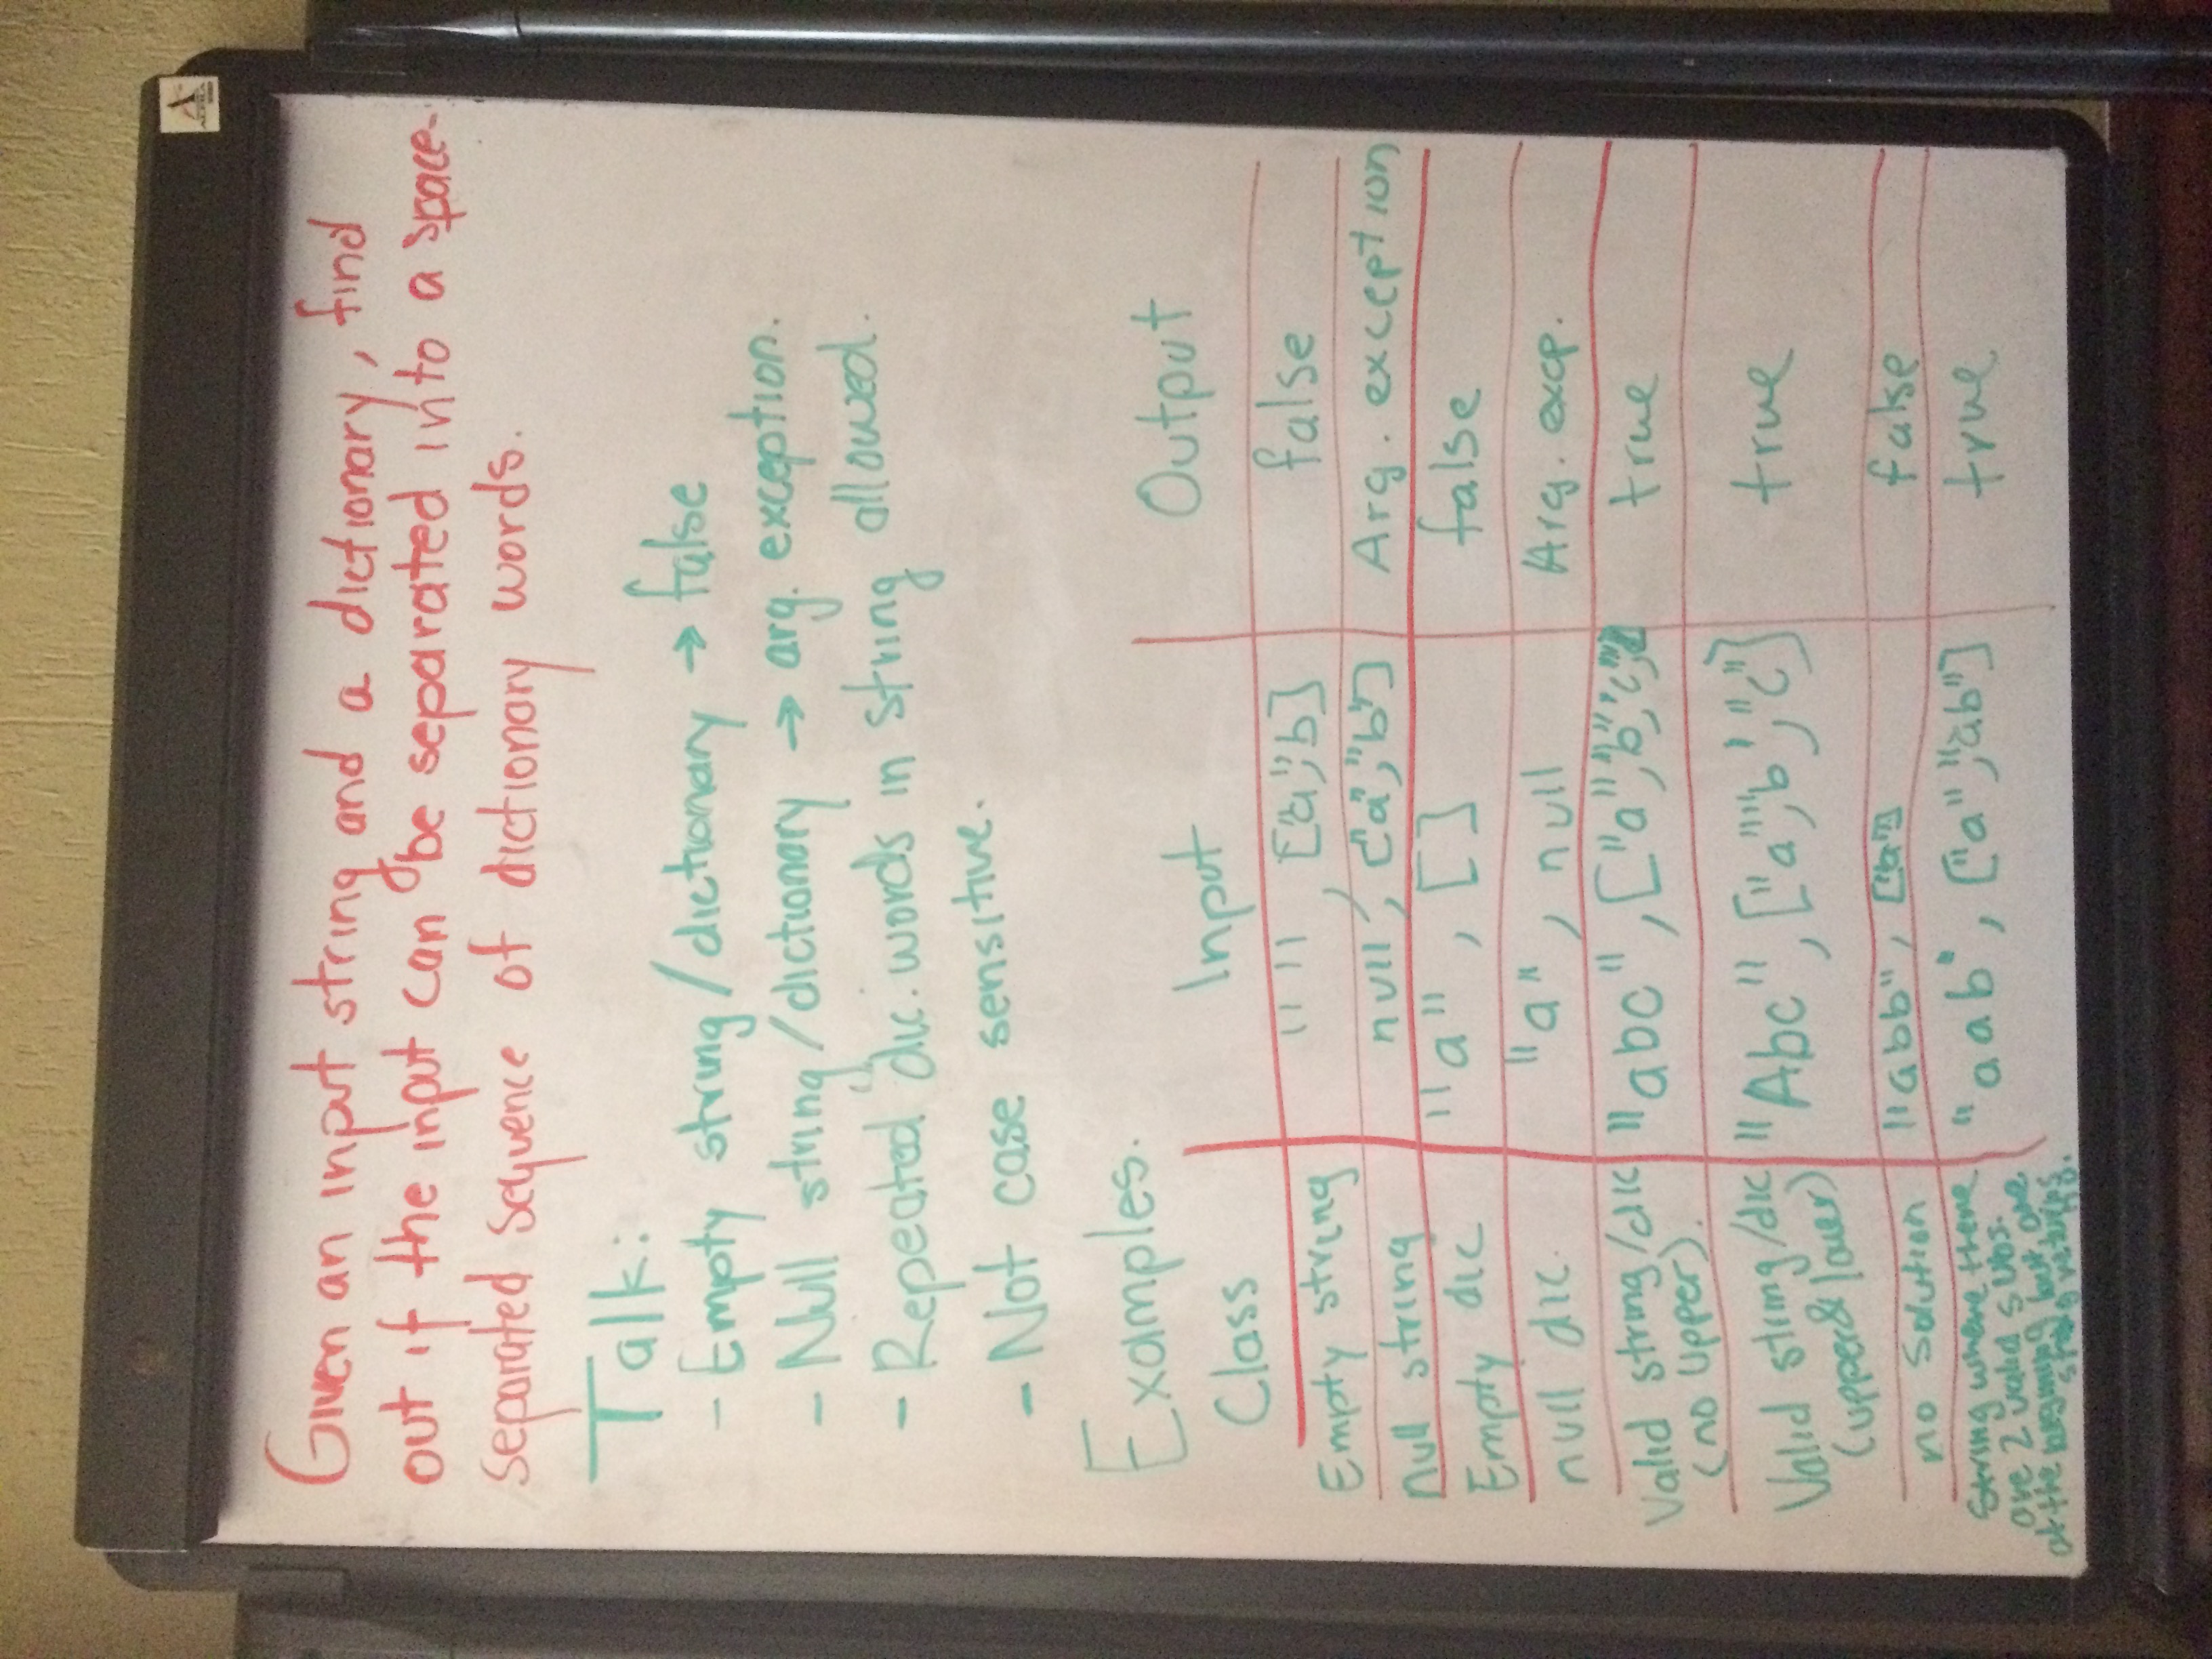 Given an input string and a dictionary, find
out if the input can be separated into a space-
separated sequence of dictionary words.
Talk:
- Empty string/dictionary → false
- Null string/dictionary → arg. exception.
- Repeated dic. words in string allowed.
- Not case sensitive.
Examples.
Class Input Output
Empty string "", ["a", b] false
null string null, ["a", "b"] Arg. exception
Empty dic "a", [] false
null dic. "a", null Arg. excp.
Valid string/dic "abc", ["a", "b", "c"] true
(no upper).
Valid string/dic "Abc", ["a", "b", "c"] true
(upper & lower)
no solution "abb", false
String where there "aab", ["a", "ab"] true
are 2 valid subs.
at the beginning but one
string returns